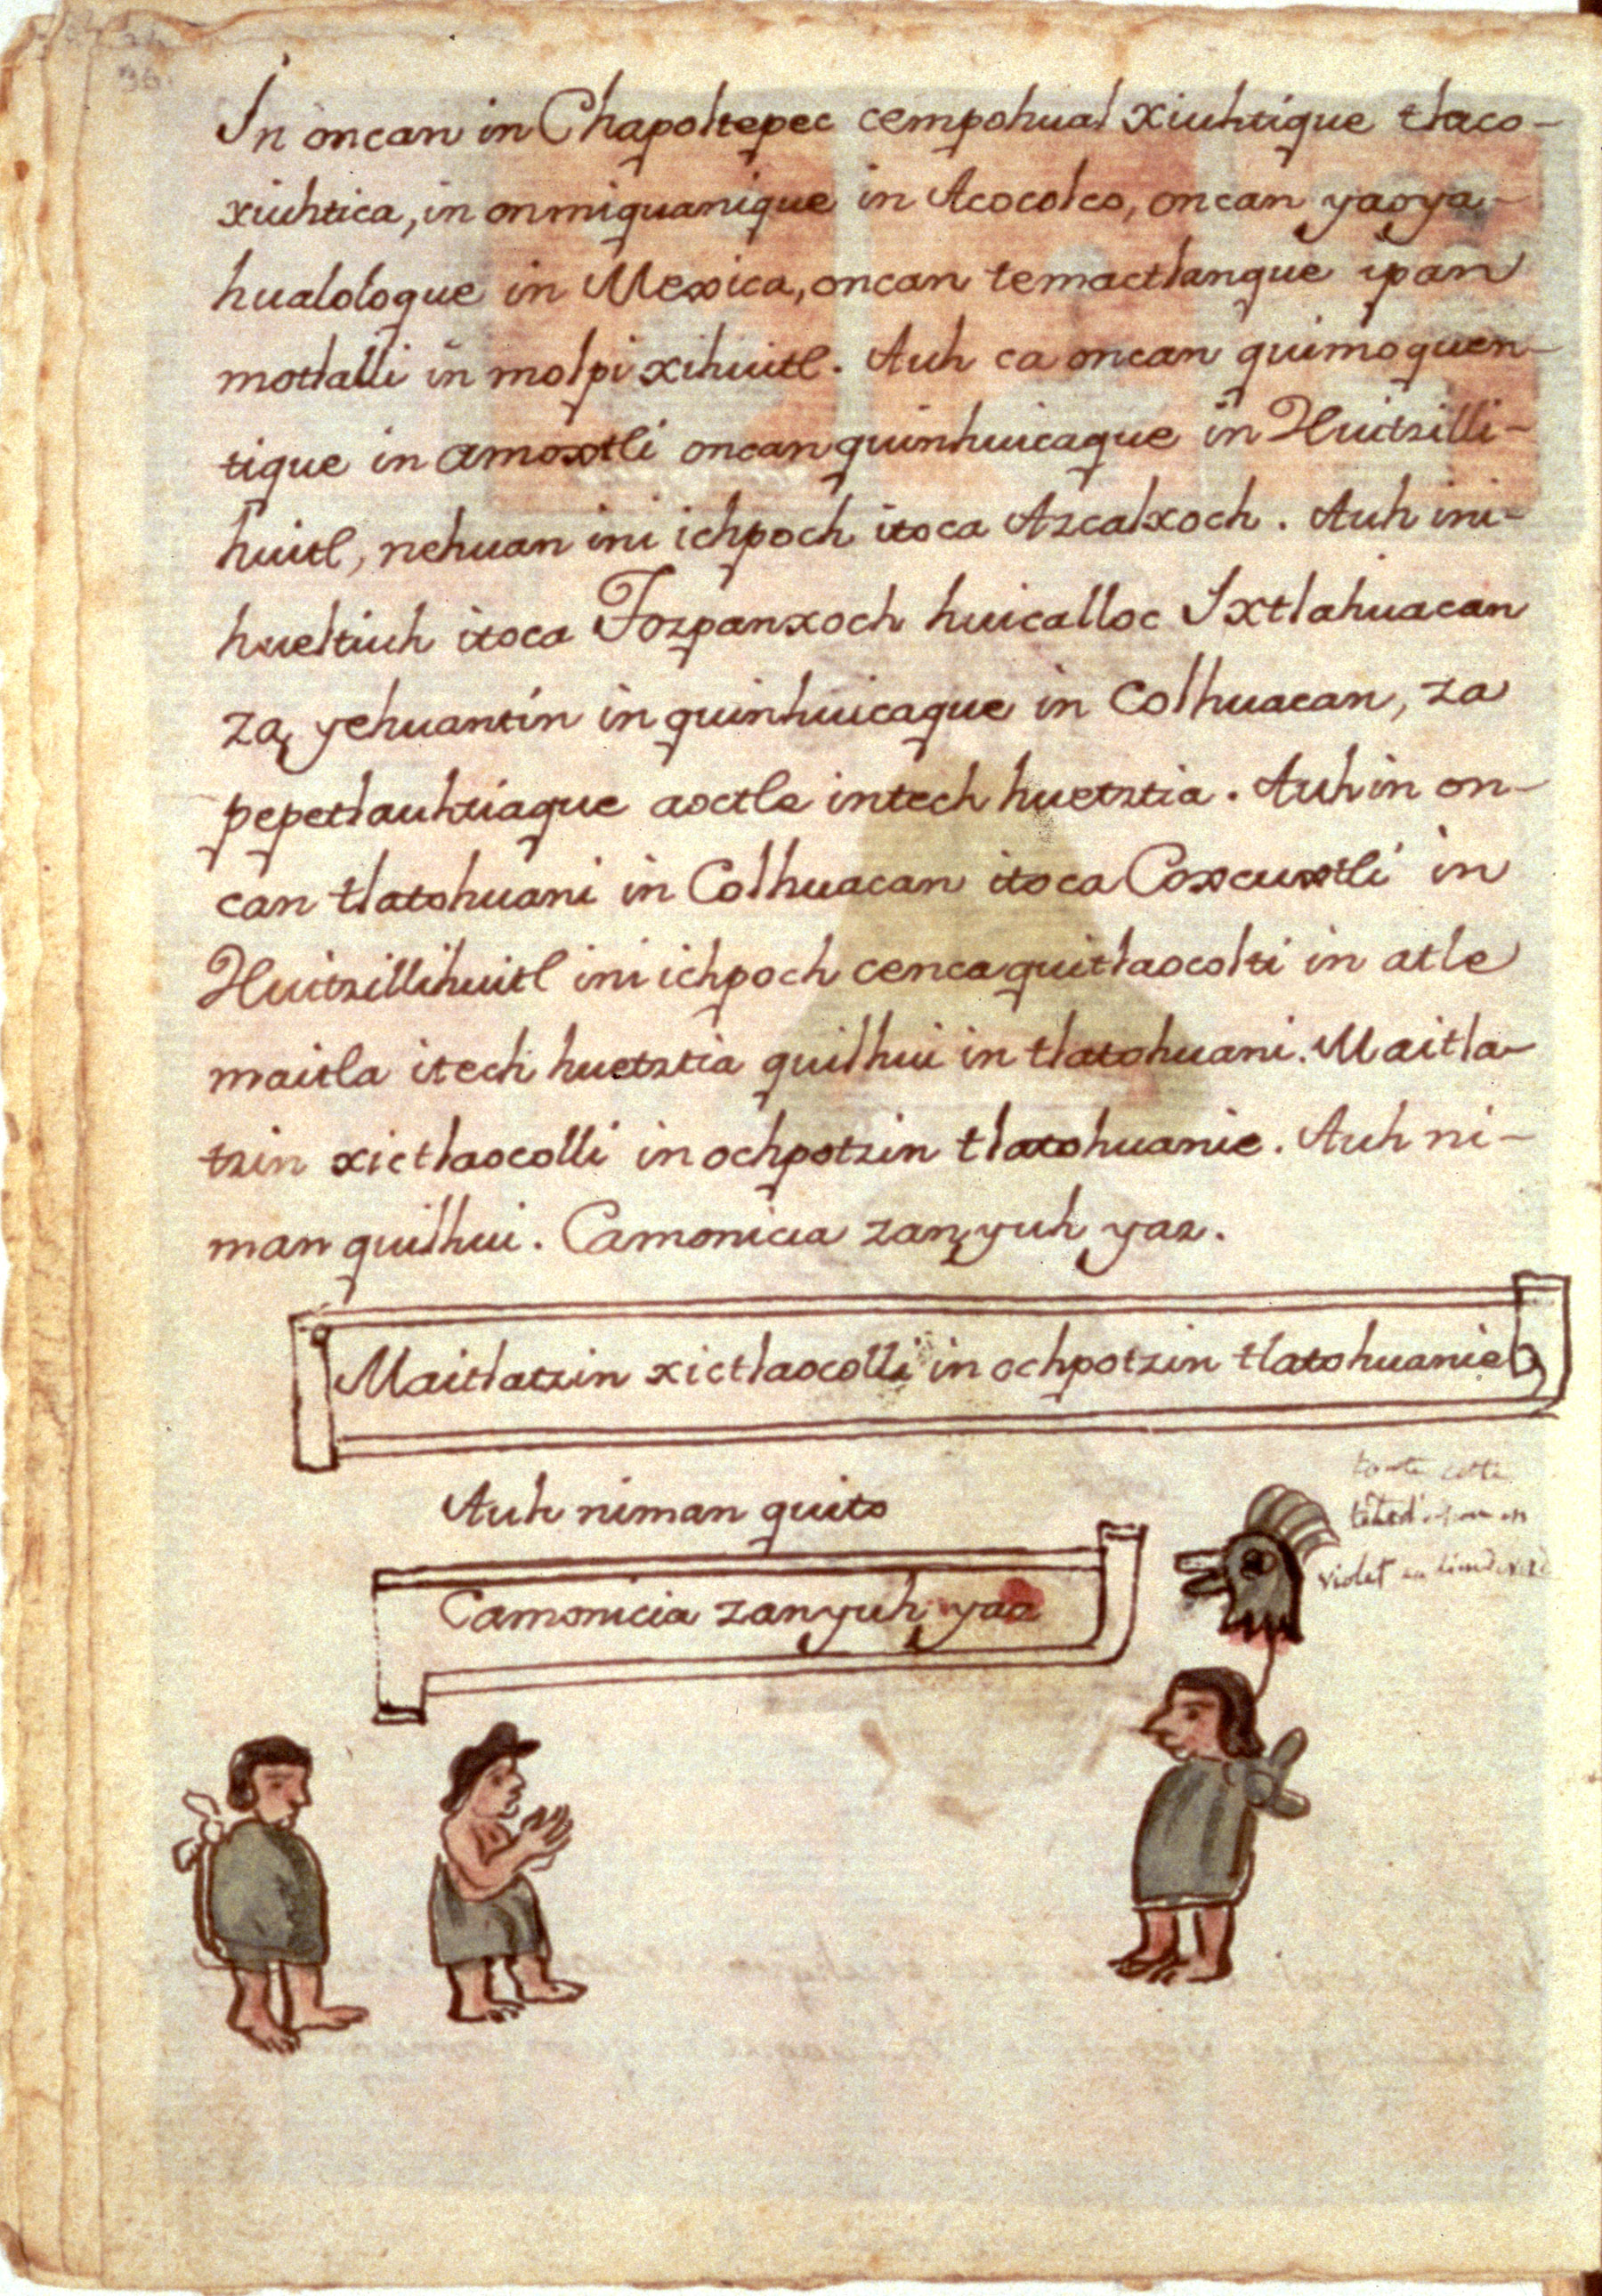 36.
In oncan in Chapoltepec cempohual xiuhtique tlaco-
xiuhtica, in onmiquanique in Acocolco, oncan yaoya-
hualoloque in Mexica, oncan temactlanque ipan
motlalli in molpi xihuitl. Auh ca oncan quimoquen-
tique in amoxtli oncan quinhuicaque in Huitzilli-
huitl, nehuan ini ichpoch itoca Azcalxoch. Auh ini-
hueltiuh itoca Tozpanxoch huicalloc Ixtlahuacan
za yehuantin in quinhuicaque in Colhuacan, za
pepetlauhtiaque aoctle intech huetztia. Auh in on-
can tlatohuani in Colhuacan itoca Coxcuxtli in
Huitzillihuitl ini ichpoch cenca quitlaocolti in atle
maitla itech huetztia quilhui in tlatohuani. Maitla-
tzin xictlaocolli in ochpotzin tlatohuanie. Auh ni-
man quilhui. Camonicia zan yuh yaz.
Maitlatzin xictlaocolli in ochpotzin tlatohuanie
Auh niman quito
Camonicia zan yuh yaz
toute cette
violet